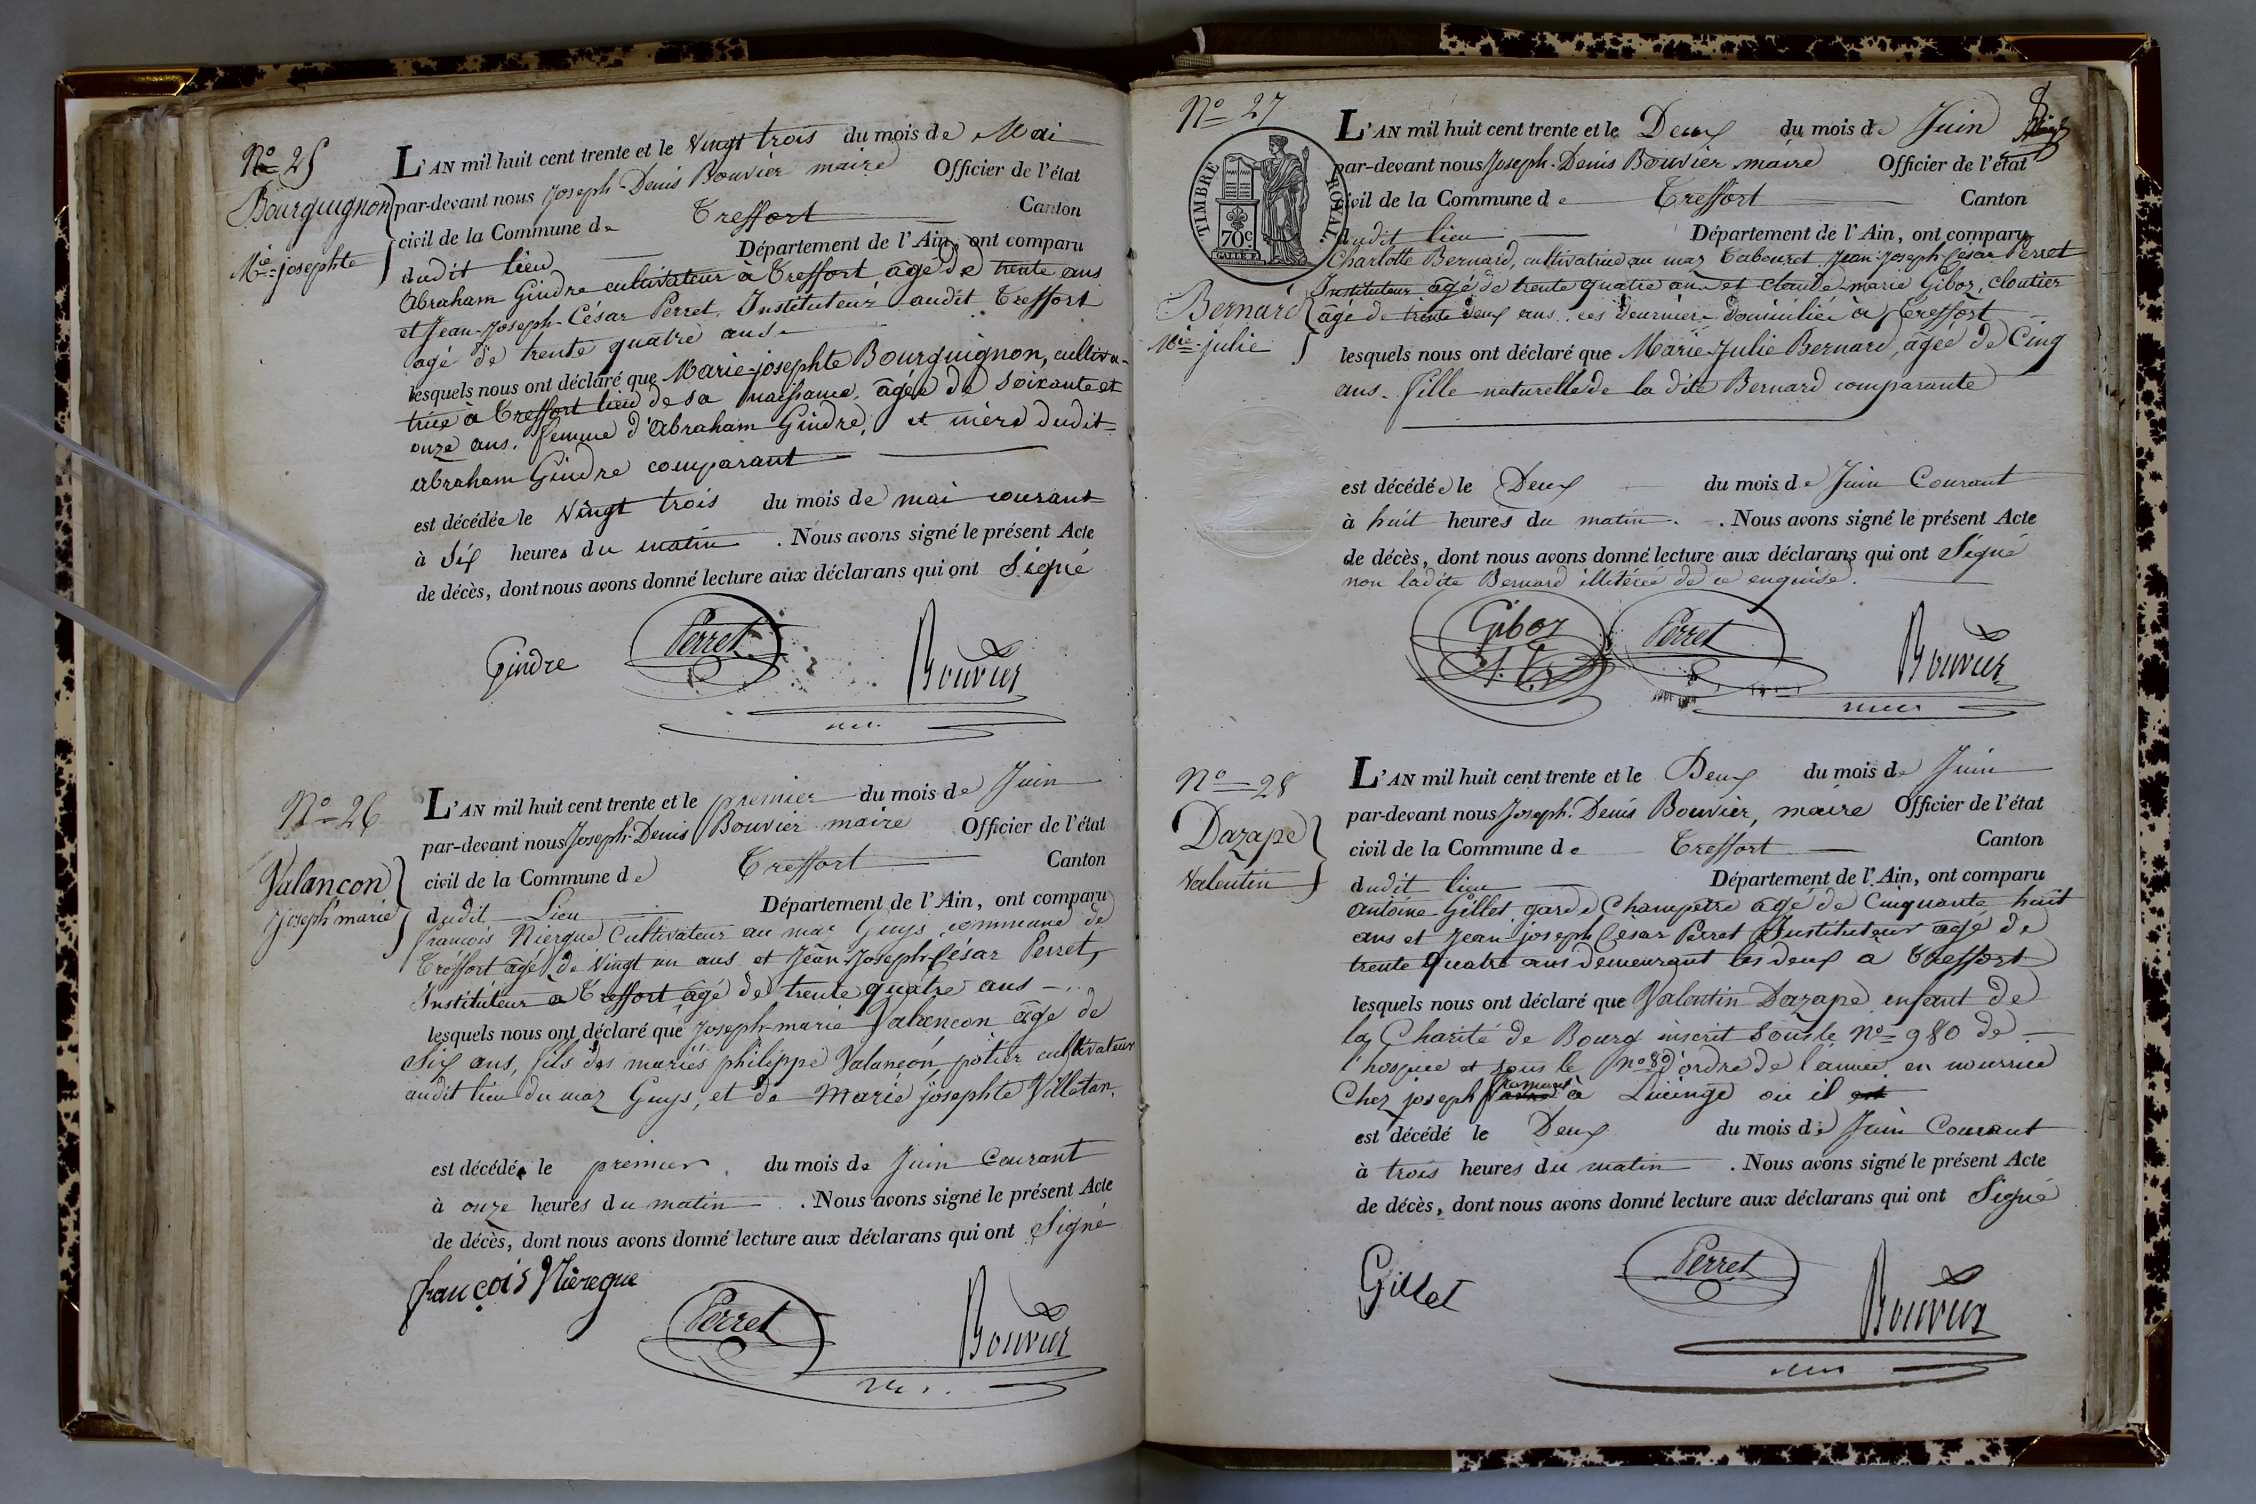 N° 25
Bourguignon
Mie josephte
L'AN mil huit cent trente et le Vingt trois du mois de Mai
par-devant nous Joseph-Denis Bouvier maire Officier de l'état
civil de la Commune de Treffort Canton
dudit lieu Département de l'Ain, ont comparu
Abraham Gindre cultivateur à Treffort âgé de trente ans
et Jean-Joseph-César Perret, Instituteur audit Treffort
agé de trente quatre ans
lesquels nous ont déclaré que Marie josephte Bourguignon, cultiva-
trice à Treffort lieu de sa naissance, âgée de soixante et
onze ans. femme d'Abraham Gindre, et mère dudit
abraham Gindre comparant
est décédée le Vingt trois du mois de mai courant
à Six heures du matin. Nous avons signé le présent Acte
de décès, dont nous avons donné lecture aux déclarans qui ont Signé
Gindre Perret Bouvier
N° 26
Valancon
joseph marie
L'AN mil huit cent trente et le premier du mois de Juin
par-devant nous Joseph-Denis Bouvier maire Officier de l'état
civil de la Commune de Treffort Canton
dudit Lieu Département de l'Ain, ont comparu
françois Niergue Cultivateur au maz Guys commune de
Treffort âgé de Vingt un ans et Jean-Joseph-César Perret,
Instituteur à Treffort âgé de trente quatre ans
lesquels nous ont déclaré que Joseph-marie Valancon âgé de
Six ans, fils des mariés philippe Valancon, potier cultivateur
audit lieu du maz Guys, et de Marie josephte Villetan.
est décédé le premier du mois de Juin Courant
à onze heures du matin. Nous avons signé le présent Acte
de décès, dont nous avons donné lecture aux déclarans qui ont Signé
françois Nieregue
Perret Bouvier
N° 27
TIMBRE ROYAL.
70c
Bernard
Mie julie
L'AN mil huit cent trente et le Deux du mois de Juin
par-devant nous Joseph-Denis Bouvier maire Officier de l'état
civil de la Commune de Treffort Canton
dudit lieu Département de l'Ain, ont comparu
Charlotte Bernard, cultivatrice au maz Tabouret Jean-Joseph-César Perret
Instituteur âgé de trente quatre ans et claude-marie Giboz, cloutier
âgé de trente deux ans ces deurniers domiciliés à Treffort
lesquels nous ont déclaré que Marie Julie Bernard, âgée de Cinq
ans. fille naturelle de la dite Bernard comparante
est décédée le Deux du mois de Juin Courant
à huit heures du matin. Nous avons signé le présent Acte
de décès, dont nous avons donné lecture aux déclarans qui ont Signé
non ladite Bernard illitérée de ce enquise.
Giboz Perret Bouvier
N° 28
Dazape
Valentin
L'AN mil huit cent trente et le Deux du mois de Juin
par-devant nous Joseph-Denis Bouvier, maire Officier de l'état
civil de la Commune de Treffort Canton
dudit lieu Département de l'Ain, ont comparu
antoine Gillet garde Champêtre âgé de Cinquante huit
ans et Jean-joseph César Perret Instituteur âgé de
trente quatre ans demeurant les deux à Treffort
lesquels nous ont déclaré que Valentin Dazape enfant de
la Charité de Bourg inscrit sous le N° 980 de
l'hospice et sous le n° 80 d'ordre de l'année, en nourrice
Chez joseph à Lucinge où il est
est décédé le Deux du mois de Juin Courant
à trois heures du matin. Nous avons signé le présent Acte
de décès, dont nous avons donné lecture aux déclarans qui ont Signé
Gillet Perret Bouvier